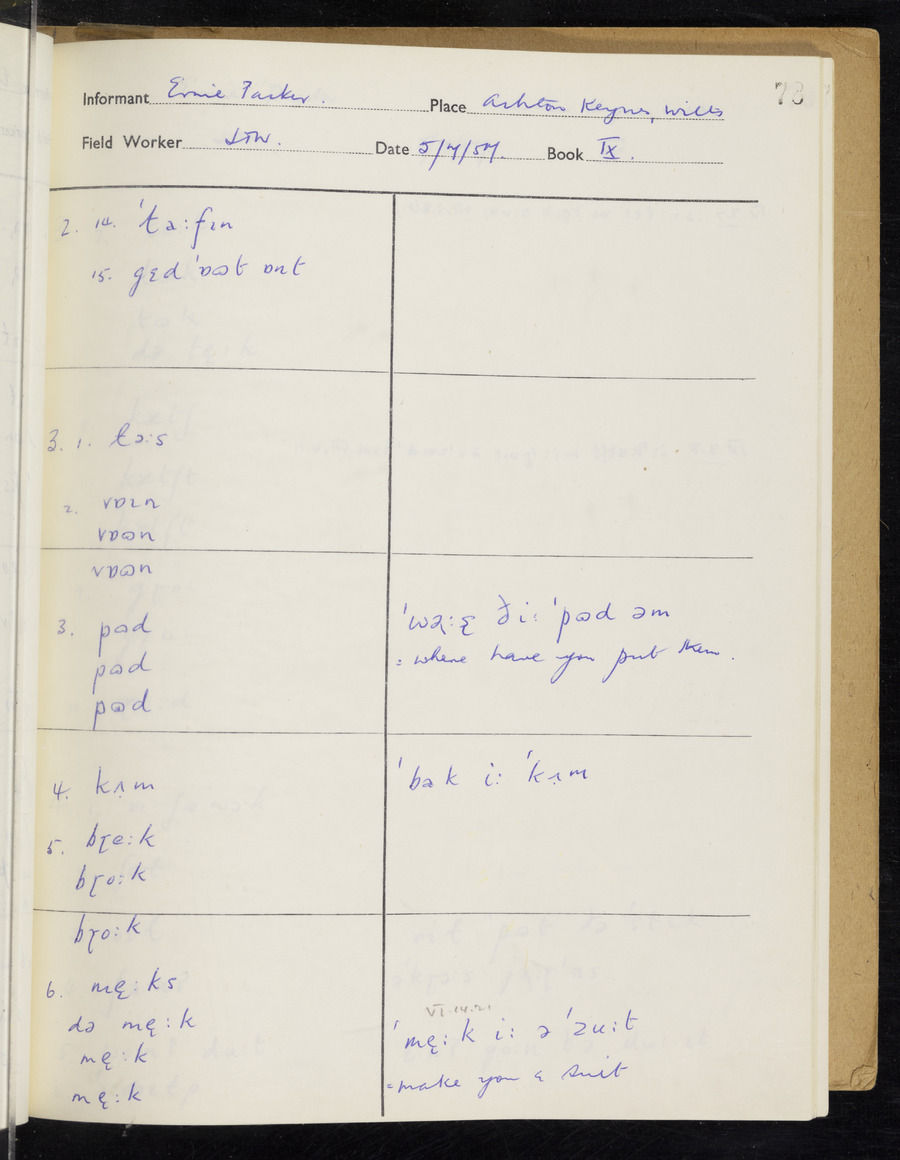 78
Informant Ernie Parker. Place Ashton Keynes, Wilts
Field Worker Date 5/7/57. Book IX.
2. 14. ˈtəːfɪn
15. gɛ̨d ˈɒɷt ɒnt
3. 1. tɔːs
2. vɒɪn
vɒɷn
vɒɷn
3. pɷd
pɷd
pɷd
ˈwəɽːɛ̨ ðiː ˈpɷd əm
= where have you put them.
4. kʌ̣m
ˈbək iː ˈkʌ̣m
5. bɽeːk
bɽoːk
bɽoːk
6. mę:ks
də mę:k
mę:k
mę:k
VI.14.21
ˈmę:k iː ə ˈzuːt
= make you a suit